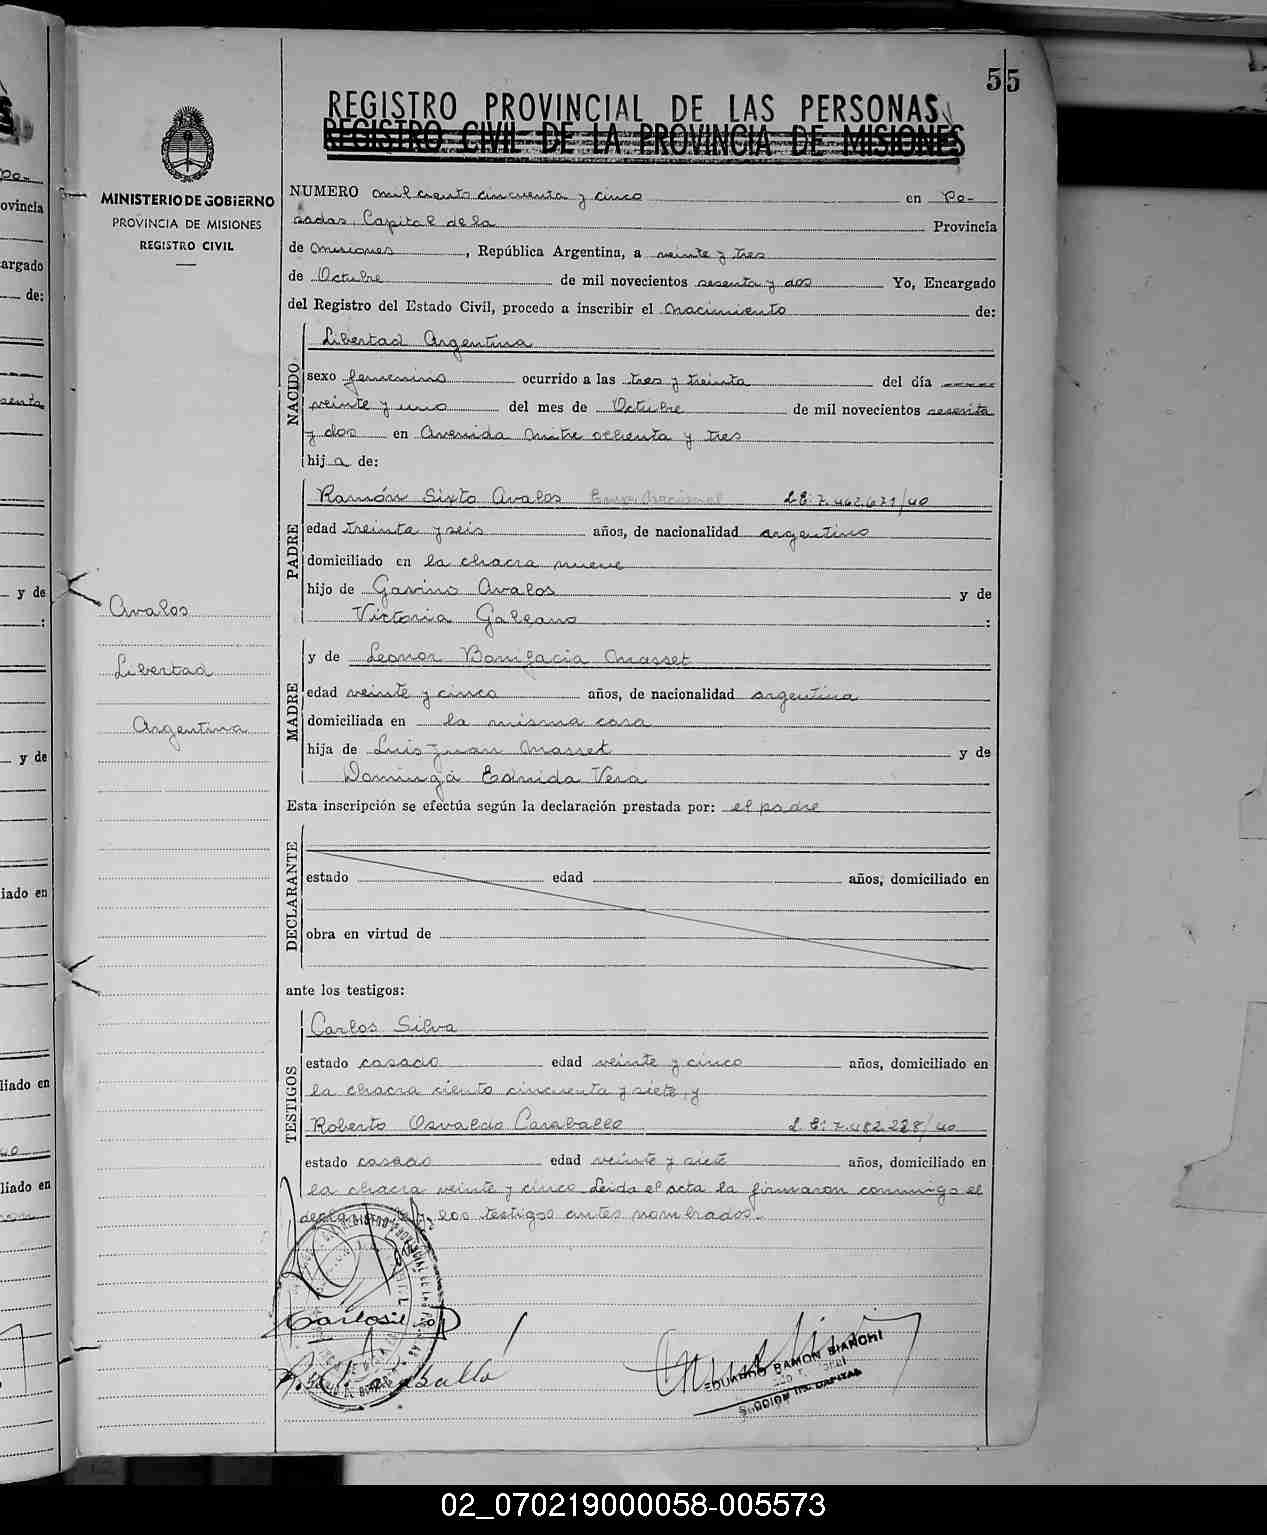 55
REGISTRO PROVINCIAL DE LAS PERSONAS
REGISTRO CIVIL DE LA PROVINCIA DE MISIONES
MINISTERIO DE GOBIERNO
PROVINCIA DE MISIONES
REGISTRO CIVIL
NUMERO mil ciento cincuenta y cinco en Po-
sadas, Capital de la Provincia
de Misiones, República Argentina, a veinte y tres
de Octubre de mil novecientos sesenta y dos Yo, Encargado
del Registro del Estado Civil, procedo a inscribir el nacimiento de:
NACIDO
Libertad Argentina
sexo femenino ocurrido a las tres y treinta del día
veinte y uno del mes de Octubre de mil novecientos sesenta
y dos en Avenida Mitre ochenta y tres
hija de:
PADRE
Ramón Sixto Avalos L E: 7.462.671/40
edad treinta y seis años, de nacionalidad argentino
domiciliado en la chacra nueve
hijo de Gavino Avalos y de
Victoria Galeano :
MADRE
y de Leonor Bonifacia Masset
edad veinte y cinco años, de nacionalidad argentina
domiciliada en la misma casa
hija de Luis Juan Masset y de
Dominga Vera
Esta inscripción se efectúa según la declaración prestada por: el padre
DECLARANTE
estado edad años, domiciliado en
obra en virtud de
ante los testigos:
TESTIGOS
Carlos Silva
estado casado edad veinte y cinco años, domiciliado en
la chacra ciento cincuenta y siete, y
Roberto Osvaldo Caraballo L E: 7.482.228/40
estado casado edad veinte y siete años, domiciliado en
la chacra veinte y cinco. Leida el acta la firmaron conmigo el
y los testigos antes nombrados.-
Avalos
Libertad
Argentina
EDUARDO RAMON BIANCHI
02_070219000058-005573